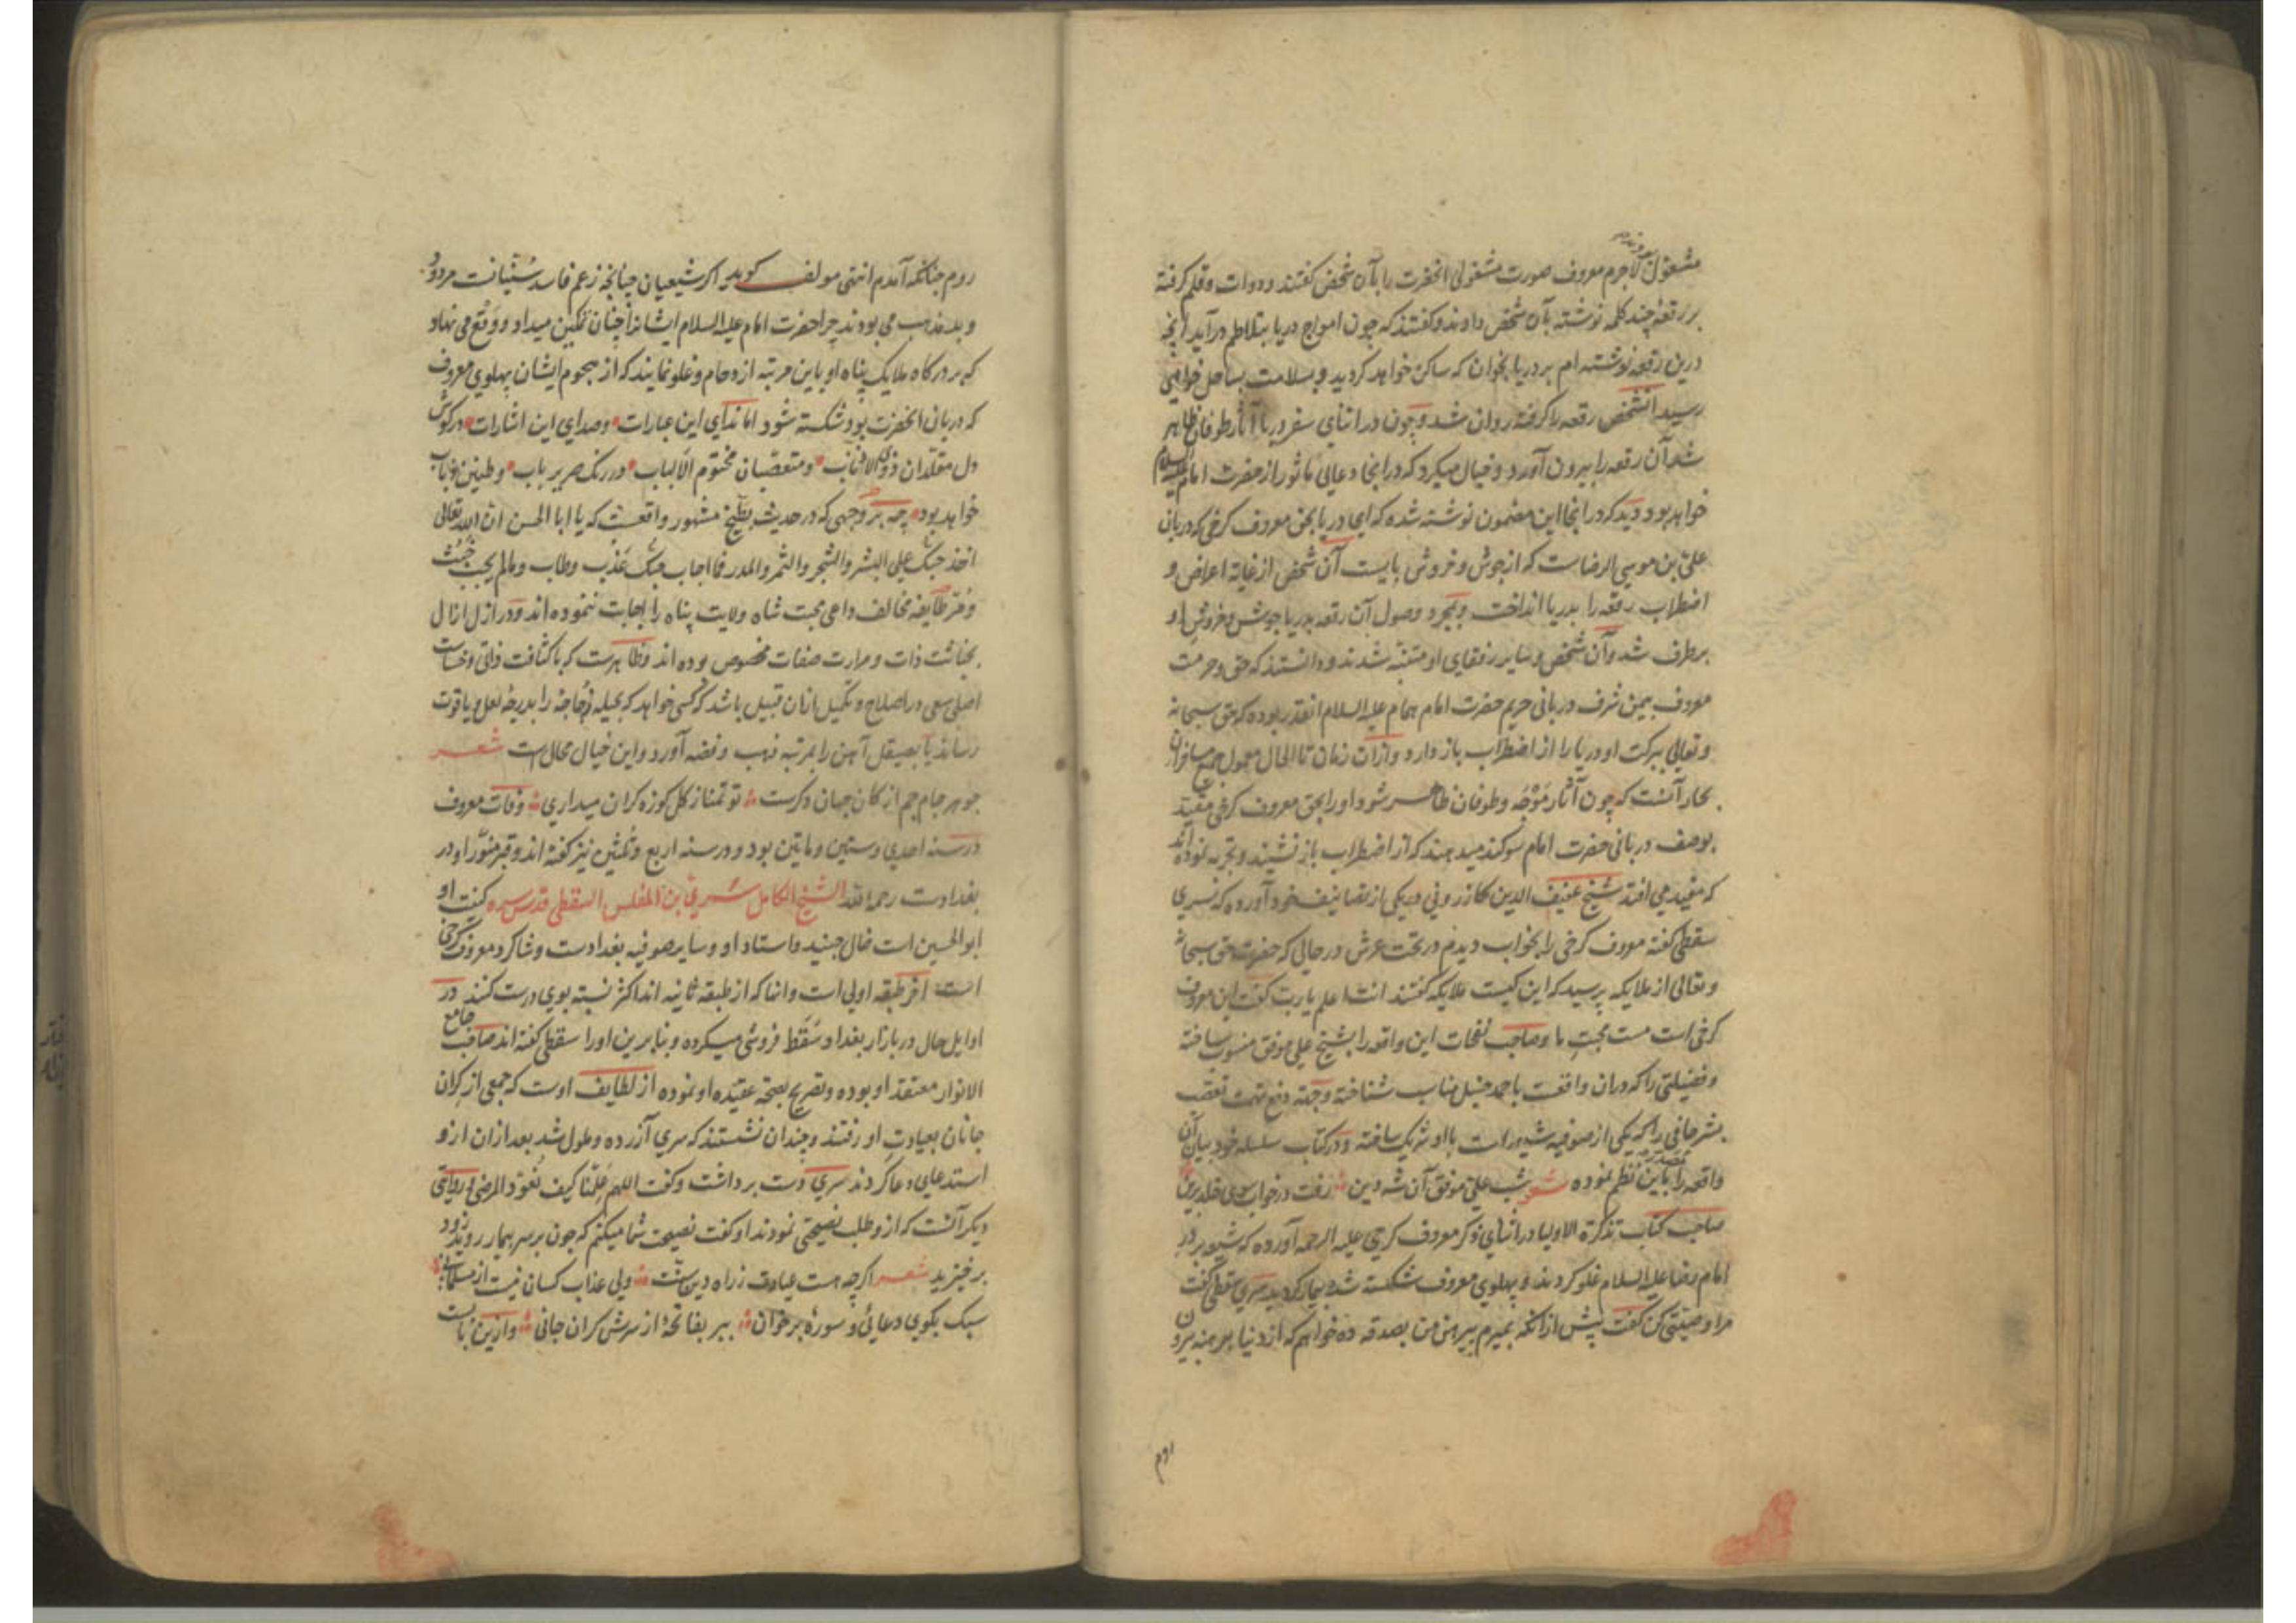 مشغول بودند لاجرم معروف صورت مشغولی انحضرت را بآن شخص گفتند و دوات و قلم گرفته
بر رقعه چند کلمه نوشته بآن شخص دادند و گفتند که چون امواج دریا بتلاطم درآید آنچه
درین رقعه نوشته ام بر دریا بخوان که ساکن خواهد کردید و بسلامت بساحل خواهی
رسید آنشخص رقعه را کرفته روان شد و چون در اثنای سفر دریا آثار طوفان ظاهر
شد آن رقعه را بیرون آورد و خیال میکرد که در انجا دعائی ماثور از حضرت امام علیه السلام
خواهد بود دید که در انجا این مضمون نوشته شده که ای دریا بحق معروف کرخی که دربان
علی بن موسی الرضاست که از جوش و خروش بایست آن شخص از غایة اعراض و
اضطراب رقعه را بدریا انداخت و بمجرد وصول آن رقعه بدریا جوش و خروش او
برطرف شد و آن شخص و سایر رفقای او متنبه شدند و دانستند که حق و حرمت
معروف بیمن شرف دربانی حریم حضرت امام همام علیه السلام انقدر بوده که حق سبحانه
و تعالی ببرکت او دریا را از اضطراب باز دارد و ازان زمان تا الحال معمول جمیع مسافران
بحار آنست که چون آثار موجه و طوفان ظاهر شود او را بحق معروف کرخی مقید
بوصف دربانی حضرت امام سوکند میدهند که از اضطراب باز نشیند و تجربه نموده اند
که مفید می افتد شیخ عفیف الدین کازرونی در یکی از تصانیف خود آورده که سری
سقطی گفته معروف کرخی را بخواب دیدم در تحت عرش در حالی که حضرت حق سبحانه
و تعالی از ملایکه پرسید که این کیست ملایکه گفتند انت اعلم یا رب گفت این معروف
کرخی است مست محبت ما و صاحب نفحات این واقعه را بشیخ علی موفق منسوب ساخته
و فضیلتی را که دران واقعست باحمد حنبل مناسب شناخته و جهة دفع تهمت تعصب
بشر حافی را که یکی از صوفیه شیعه است با او شریک ساخته و در کتاب سلسله خود بیان آن
واقعه را باین نظم نموده شعر شب علی موفق آن شه دین رفت در خواب سوی خلد برین
صاحب کتاب تذکرة الاولیا در اثنای ذکر معروف کرخی علیه الرحمه آورده که شیعه بر در
امام رضا علیه السلام غلو کردند و پهلوی معروف شکسته شد و بیمار کردید سری سقطی گفت
مرا وصیتی کن گفت پیش ازانکه بمیرم پیرهن من بصدقه ده خواهم که از دنیا برهنه بیرون
روم
روم چنانکه آمدم انتهی مولف کوید اکر شیعیان چنانچه زعم فاسد سنیانست مردود
و بد مذهب می بودند چرا حضرت امام علیه السلام ایشانرا چنان تمکین میداد و وقع می نهاد
که بر درکاه ملایک پناه او باین مرتبه ازدحام و غلو نمایند که از هجوم ایشان پهلوی معروف
که دربان انحضرت بود شکسته شود اما ندای این عبارات و صدای این اشارات در کوش
دل مقلدان ذوی الاذناب و متعصبان مختوم الالباب در رنک صریر باب و طنین ذباب
خواهد بود چه بر وجهی که در حدیث بطیخ مشهور واقعست که یا ابا الحسن ان الله تعالی
اخذ حبک علی البشر والشجر والثمر والمدر فما اجاب حبک عذب وطاب ومالم یجب خبث
ومر طایفه مخالف داعی محبت شاه ولایت پناه را اجابت ننموده اند و در ازل ازال
بخباثت ذات و مرارت صفات مخصوص بوده اند و ظاهرست که با کثافت ذاتی و خساست
اصلی سعی در اصلاح و تکمیل ازان قبیل باشد که کسی خواهد که بحیله زجاجه را بدرجهٔ لعل و یاقوت
رساند یا بصیقل آهن را بمرتبه ذهب و فضه آورد و این خیال محال است شعر
جوهر جام جم از کان جهان دکرست تو تمنا ز کل کوزه کران میداری وفات معروف
در سنه احدی و ستین و مأتین بود و در سنه اربع و ثلثین نیز کفته اند و قبر منور او در
بغدادست رحمه الله الشیخ الکامل سری بن المفلس السقطی قدس سره کنیت او
ابو الحسین است خال جنید و استاد او و سایر صوفیه بغدادست و شاکرد معروف کرخی
است از طبقه اولی است و انها که از طبقه ثانیه اند اکثر نسبت بوی درست کنند در
اوایل حال در بازار بغداد سقط فروشی میکرده و بنابرین اورا سقطی کفته اند صاحب جامع
الانوار معتقد او بوده و تصریح بصحة عقیده او نموده از لطایف اوست که جمعی از کران
جانان بعیادت او رفتند و چندان نشستند که سری آزرده و ملول شد بعد ازان ازو
استدعای دعا کردند سری دست برداشت و کفت اللهم علمنا کیف نعود المرضی و روایتی
دیکر آنست که ازو طلب نصیحتی نمودند او کفت نصیحت شما میکنم که چون بر سر بیمار روید زود
برخیزید شعر اکرچه هست عیادت ز راه دین سنت ولی عذاب کسان نیست از مسلمانی
سبک بکوی دعائی و سورهٔ برخوان ببر بفاتحهٔ از سرش کران جانی و ازین بابست